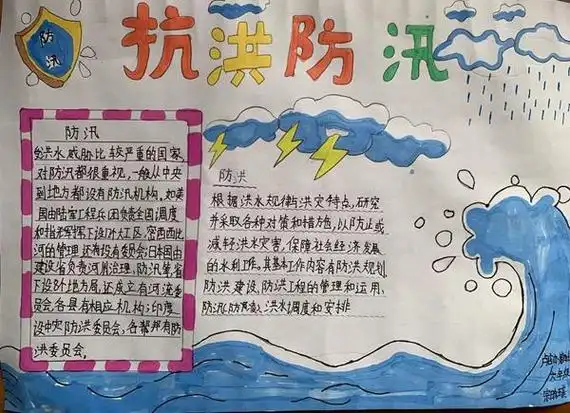 防
汛
抗洪防汛
防汛
受洪水威胁比较严重的国家,
对防汛都很重视,一般从中央
到地方都设有防汛机构,如美
国由陆军工程兵团负责全国调度
和指挥,下设工区,密西西比
河的管理还有设有委员会;日本国由
建设省负责河川治理,防汛,省
下设8个地方局,还成立有河流委
员会,各县有相应机构;印度
设中央防洪委员会,各邦有防
洪委员会,
防洪
根据洪水规律与洪灾特点,研究
并采取各种对策和措施,以防止或
减轻洪水灾害,保障社会经济发展
的水利工作。其基本工作内容有防洪规划
防洪建设,防洪工程的管理和运用,
防汛(防凌),洪水调度和安排